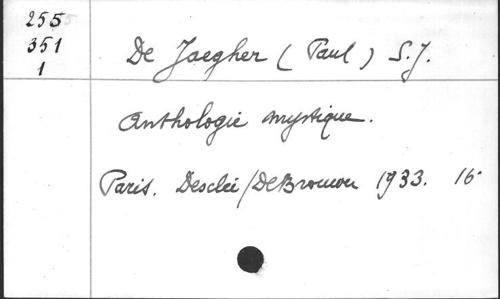 255
351
1
De Jaegher (Paul) S.J.
Anthologie mystique.
Paris. Desclée/De Brouwer 1933. 16°